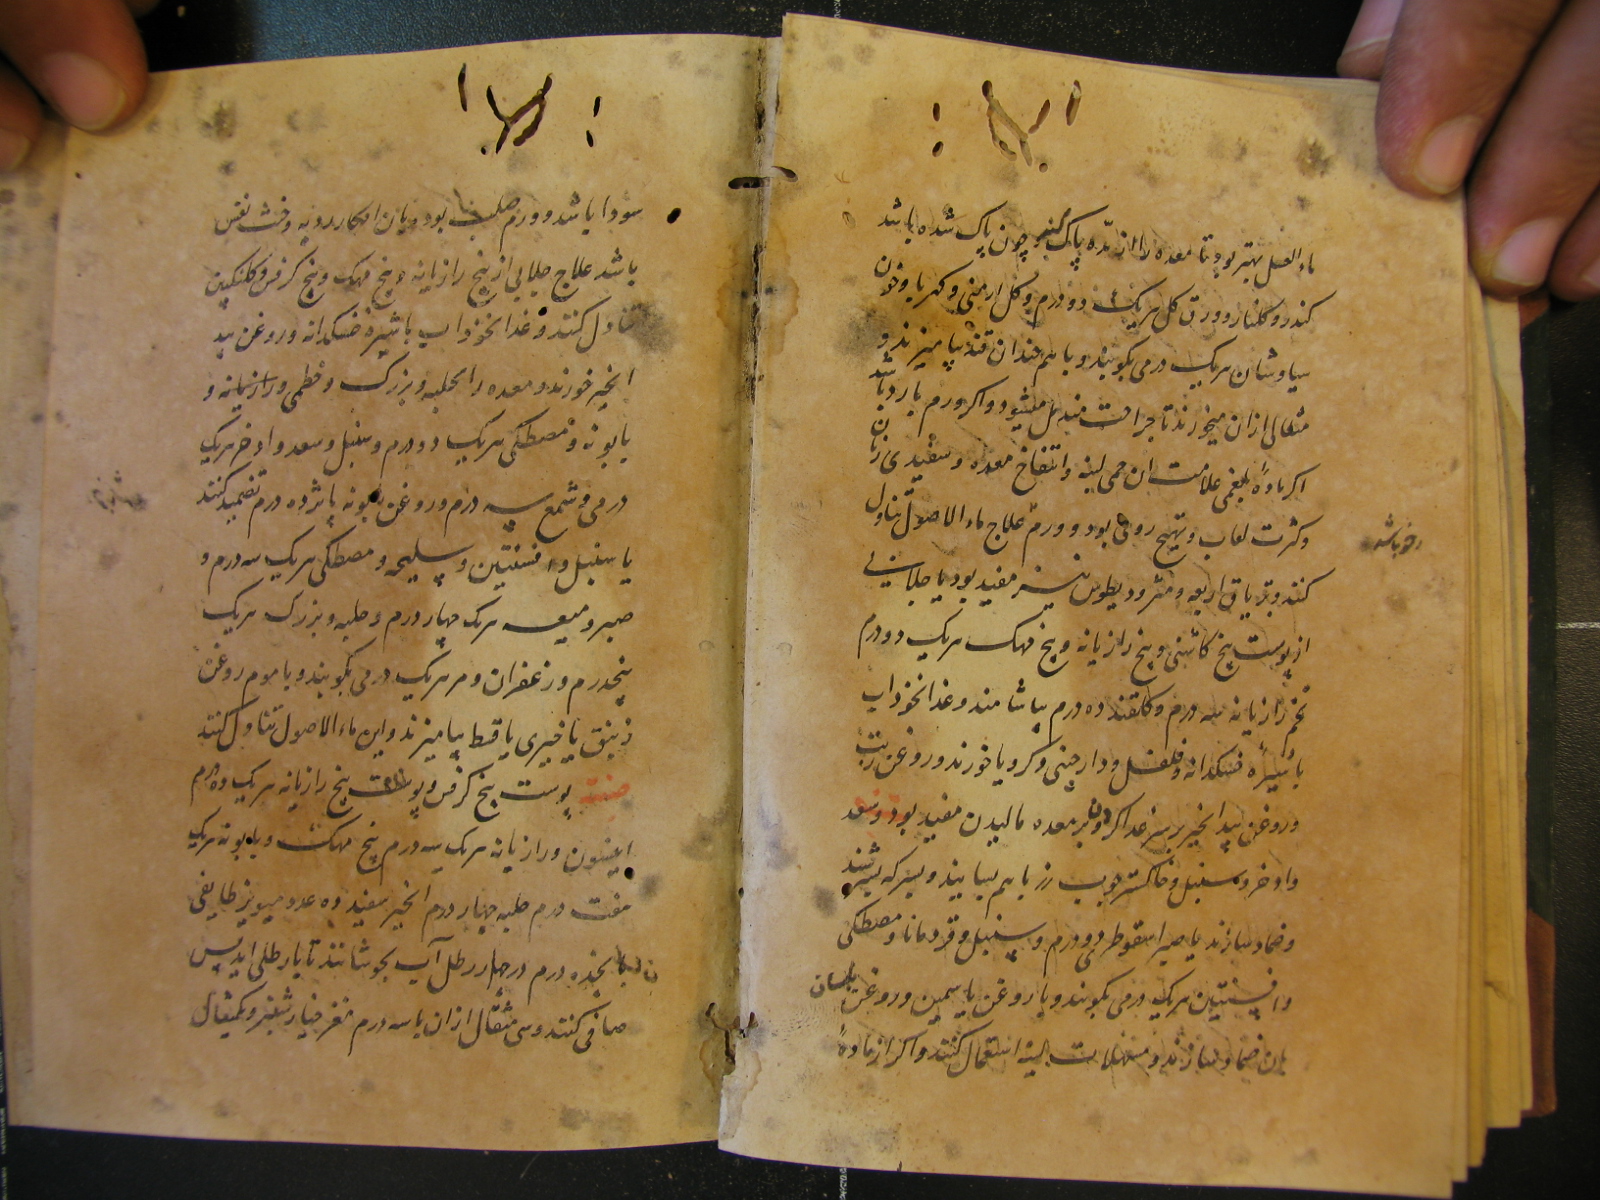 ماء العسل بهتر بود تا معده را از مدّه پاک کند چون پاک شده باشد
کندر و گلنار و ورق گل هریک دو درم و گل ارمنی و کهربا و خون
سیاوشان هریک درمی بکوبند و با هم چندان قند بیامیزند و
مثقالی ازان میخورند تا جراحت مندمل میشود و اگر ورم بارد باشد
اگر مادهٔ بلغمی علامت ان حمی لینه و انتفاخ معده و سفیدی زبان
و کثرت لعاب و تهیج روی بود و ورم علاج ماء الاصول تناول
رخو باشد
کنند و تریاق اربعه و مثرودیطوس نیز مفید بود یا جلابی
از پوست بیخ کاسنی و بیخ رازیانه و بیخ مهک هریک دو درم
تخم رازیانه سه درم و گلقند ده درم بیاشامند و غذا نخوداب
با شیره خسکدانه و فلفل و دارچینی و کرویا خورند و روغن زیت
و روغن بیدانجیر بر سر غذا کردن و بر معده مالیدن مفید بود و سعد
و اذخر و سنبل و خاکستر چوب رز با هم بسایند و بسرکه بسرشند
و ضماد سازند یا صبر اسقوطری دو درم و سنبل و قردمانا و مصطکی
و افسنتین هریک درمی بکوبند و با روغن یاسمین و روغن بلسان
بان ضماد سازند و مسهلات لینه استعمال کنند و اگر از مادهٔ
سودا باشد و ورم صلب بود و بان افکار ردیه و خبث نفس
باشد علاج جلابی از بیخ رازیانه و بیخ مهک و بیخ کرفس و گلنگبین
تناول کنند و غذا نخوداب با شیره خسکدانه و روغن بید
انجیر خورند و معده را بحلبه و بزرک و خطمی و رازیانه و
بابونه و مصطکی هریک دو درم و سنبل و سعد و اذخر هریک
درمی و شمع سه درم و روغن بابونه پانزده درم تضمید کنند
یا سنبل و افسنتین و سلیخه و مصطکی هریک سه درم و
صبر و میعه هریک چهار درم و حلبه و بزرک هریک
پنجدرم و زعفران و مر هریک درمی بکوبند و با موم روغن
زنبق یا خیری یا قسط بیامیزند و این ماء الاصول تناول کنند
صفت پوست بیخ کرفس و پوست بیخ رازیانه هریک ده درم
انیسون و رازیانه هریک سه درم بیخ مهک و بابونه هریک
هفت درم حلبه چهار درم انجیر سفید ده عدد میویز طایفی
پانزده درم در چهار رطل آب بجوشانند تا با رطلی اید پس
صافی کنند و سی مثقال ازان با سه درم مغز خیار شنبر و یکمثقال